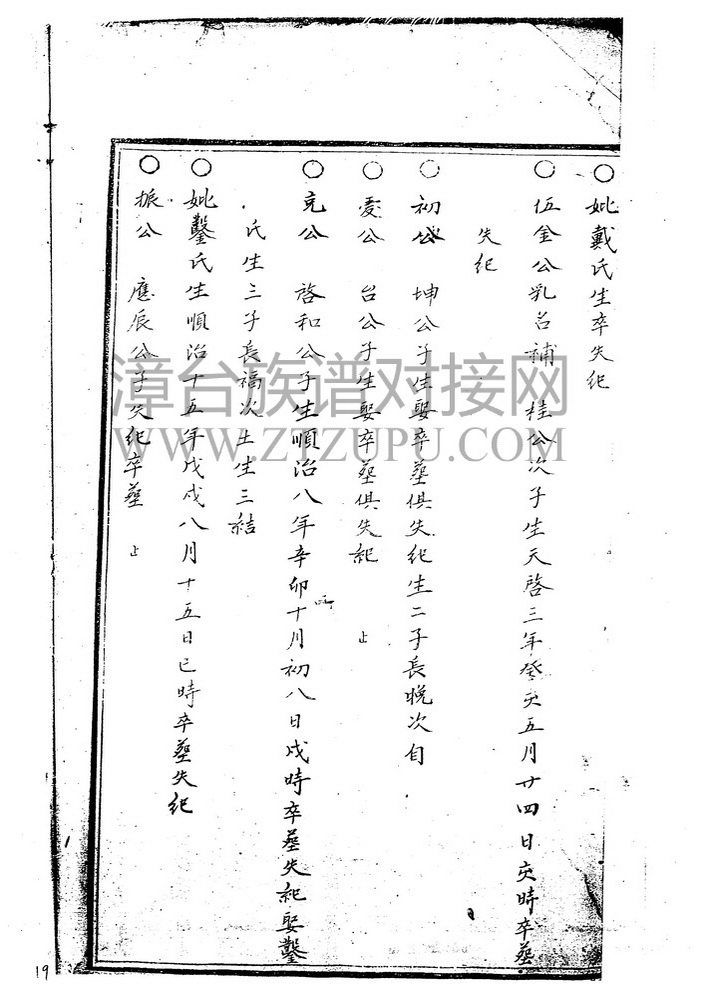 ○妣戴氏生卒失紀
○伍金公乳名補 桂公次子生天啓三年癸亥五月廿四日亥時卒塟
失紀
○初公 坤公子生娶卒塟俱失紀生二子長晚次自
○愛公 台公子生娶卒塟俱失紀 止
○克公 啓和公子生順治八年辛卯十月初八日戌時卒塟失紀娶鑿
氏生三子長福次土生三結
○妣鑿氏生順治十五年戊戌八月十五日巳時卒塟失紀
○振公 應辰公子失紀卒塟 止
漳台族谱对接网
WWW.ZTZUPU.COM
19